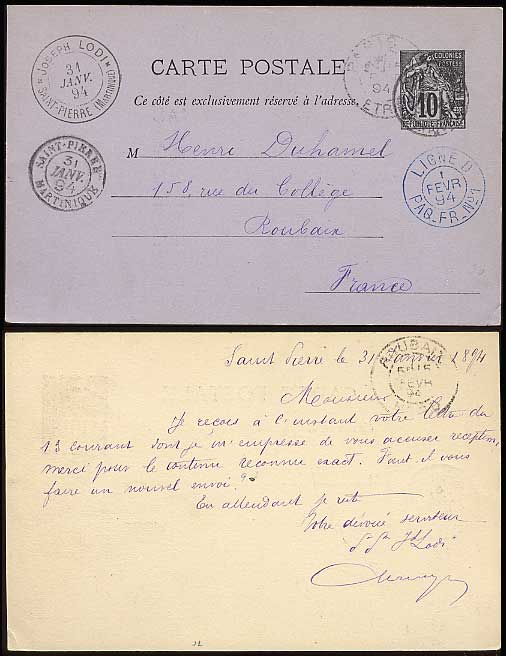 JOSEPH LODI
31
JANV.
94
SAINT-PIERRE (MARTINIQUE)
CARTE POSTALE
Ce côté est exclusivement réservé à l'adresse.
COLONIES
POSTES
10
RÉPUBLIQUE FRANÇAISE
PARIS
94
ETR
SAINT-PIERRE
31
JANV.
94
MARTINIQUE
M Henri Duhamel
158, rue du Collège
Roubaix
France
LIGNE D
1
FEVR
94
PAQ. FR. No 1
Saint Pierre le 31 Janvier 1894
ROUBAIX
FEVR
94
Monsieur
Je reçois à l'instant votre lettre du
13 courant dont je m'empresse de vous accuser reception,
merci pour le contenu reconnu exact. Faut il vous
faire un nouvel envoi?
En attendant je reste
Votre dévoué serviteur
Lodi